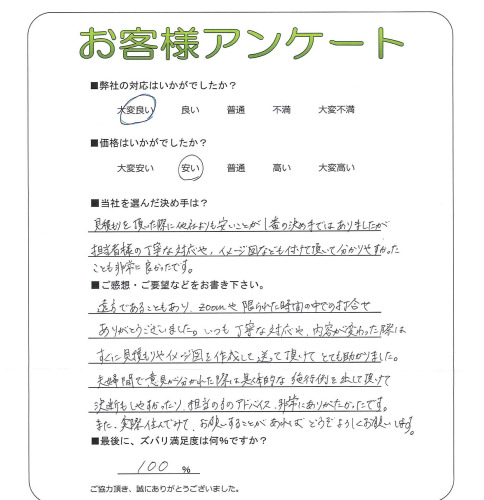 お客様アンケート
■弊社の対応はいかがでしたか？
大変良い 良い 普通 不満 大変不満
■価格はいかがでしたか？
大変安い 安い 普通 高い 大変高い
■当社を選んだ決め手は？
見積りを頂いた際に他社よりも安いことが1番の決め手ではありましたが
担当者様の丁寧な対応や、イメージ図なども付けて頂いて分かりやすかった
ことも非常に良かったです。
■ご感想・ご要望などをお書き下さい。
遠方であることもあり、zoomや限られた時間の中での打合せ
ありがとうございました。いつも丁寧な対応や、内容が変わった際は
すぐに見積もりやイメージ図を作成して送って頂けてとても助かりました。
夫婦間で意見が分かれた際は具体的な施行例を出して頂けて
決断もしやすかったり、担当の方のアドバイス、非常にありがたかったです。
また、実際住んでみて、お願いすることがあればどうぞよろしくお願いします。
■最後に、ズバリ満足度は何%ですか？
100 %
ご協力頂き、誠にありがとうございました。